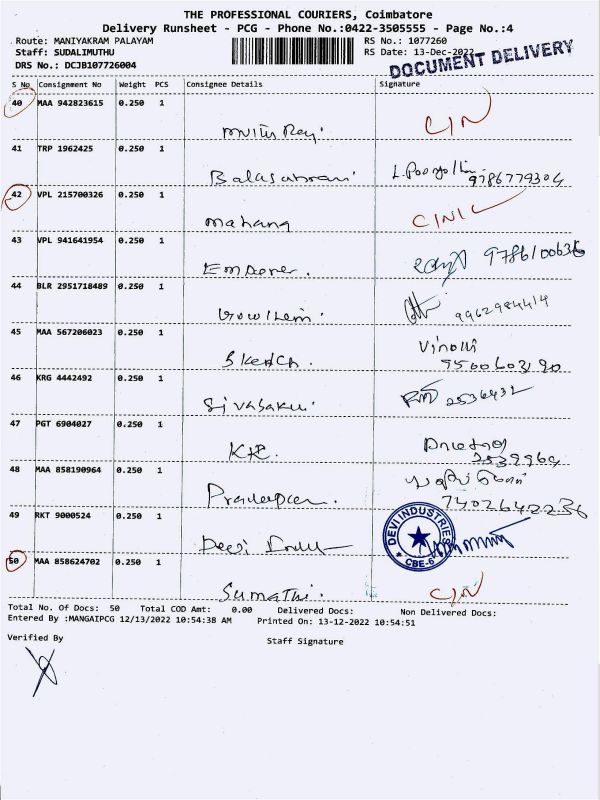 THE PROFESSIONAL COURIERS, Coimbatore
Delivery Runsheet - PCG - Phone No.:0422-3505555 - Page No.:4
Route: MANIYAKRAM PALAYAM RS No.: 1077260
Staff: SUDALIMUTHU RS Date: 13-Dec-2022
DRS No.: DCJB107726004 DOCUMENT DELIVERY
S No Consignment No Weight PCS Consignee Details Signature
40 MAA 942823615 0.250 1
41 TRP 1962425 0.250 1
9786779304
42 VPL 215700326 0.250 1
mahana
43 VPL 941641954 0.250 1
9786100636
44 BLR 2951718489 0.250 1
Gowthem. 9962984414
45 MAA 567206023 0.250 1
Sketch. Vinoth
9500603190
46 KRG 4442492 0.250 1
Sivasakti 2536432
47 PGT 6904027 0.250 1
KR.
48 MAA 858190964 0.250 1
49 RKT 9000524 0.250 1
Devi DEVI INDUSTRIES
CBE-6
50 MAA 858624702 0.250 1
Sumathi.
Total No. Of Docs: 50 Total COD Amt: 0.00 Delivered Docs: Non Delivered Docs:
Entered By :MANGAIPCG 12/13/2022 10:54:38 AM Printed On: 13-12-2022 10:54:51
Verified By Staff Signature